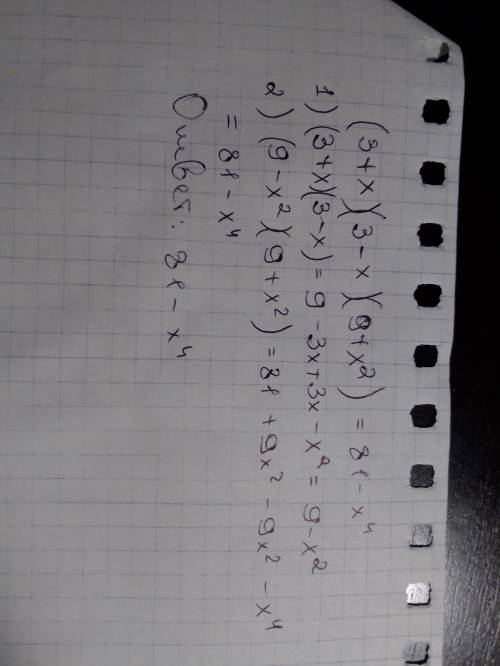 (3+x)(3-x)(9+x²) = 81-x⁴
1) (3+x)(3-x) = 9-3x+3x-x² = 9-x²
2) (9-x²)(9+x²) = 81+9x²-9x²-x⁴
= 81-x⁴
Ответ: 81-x⁴